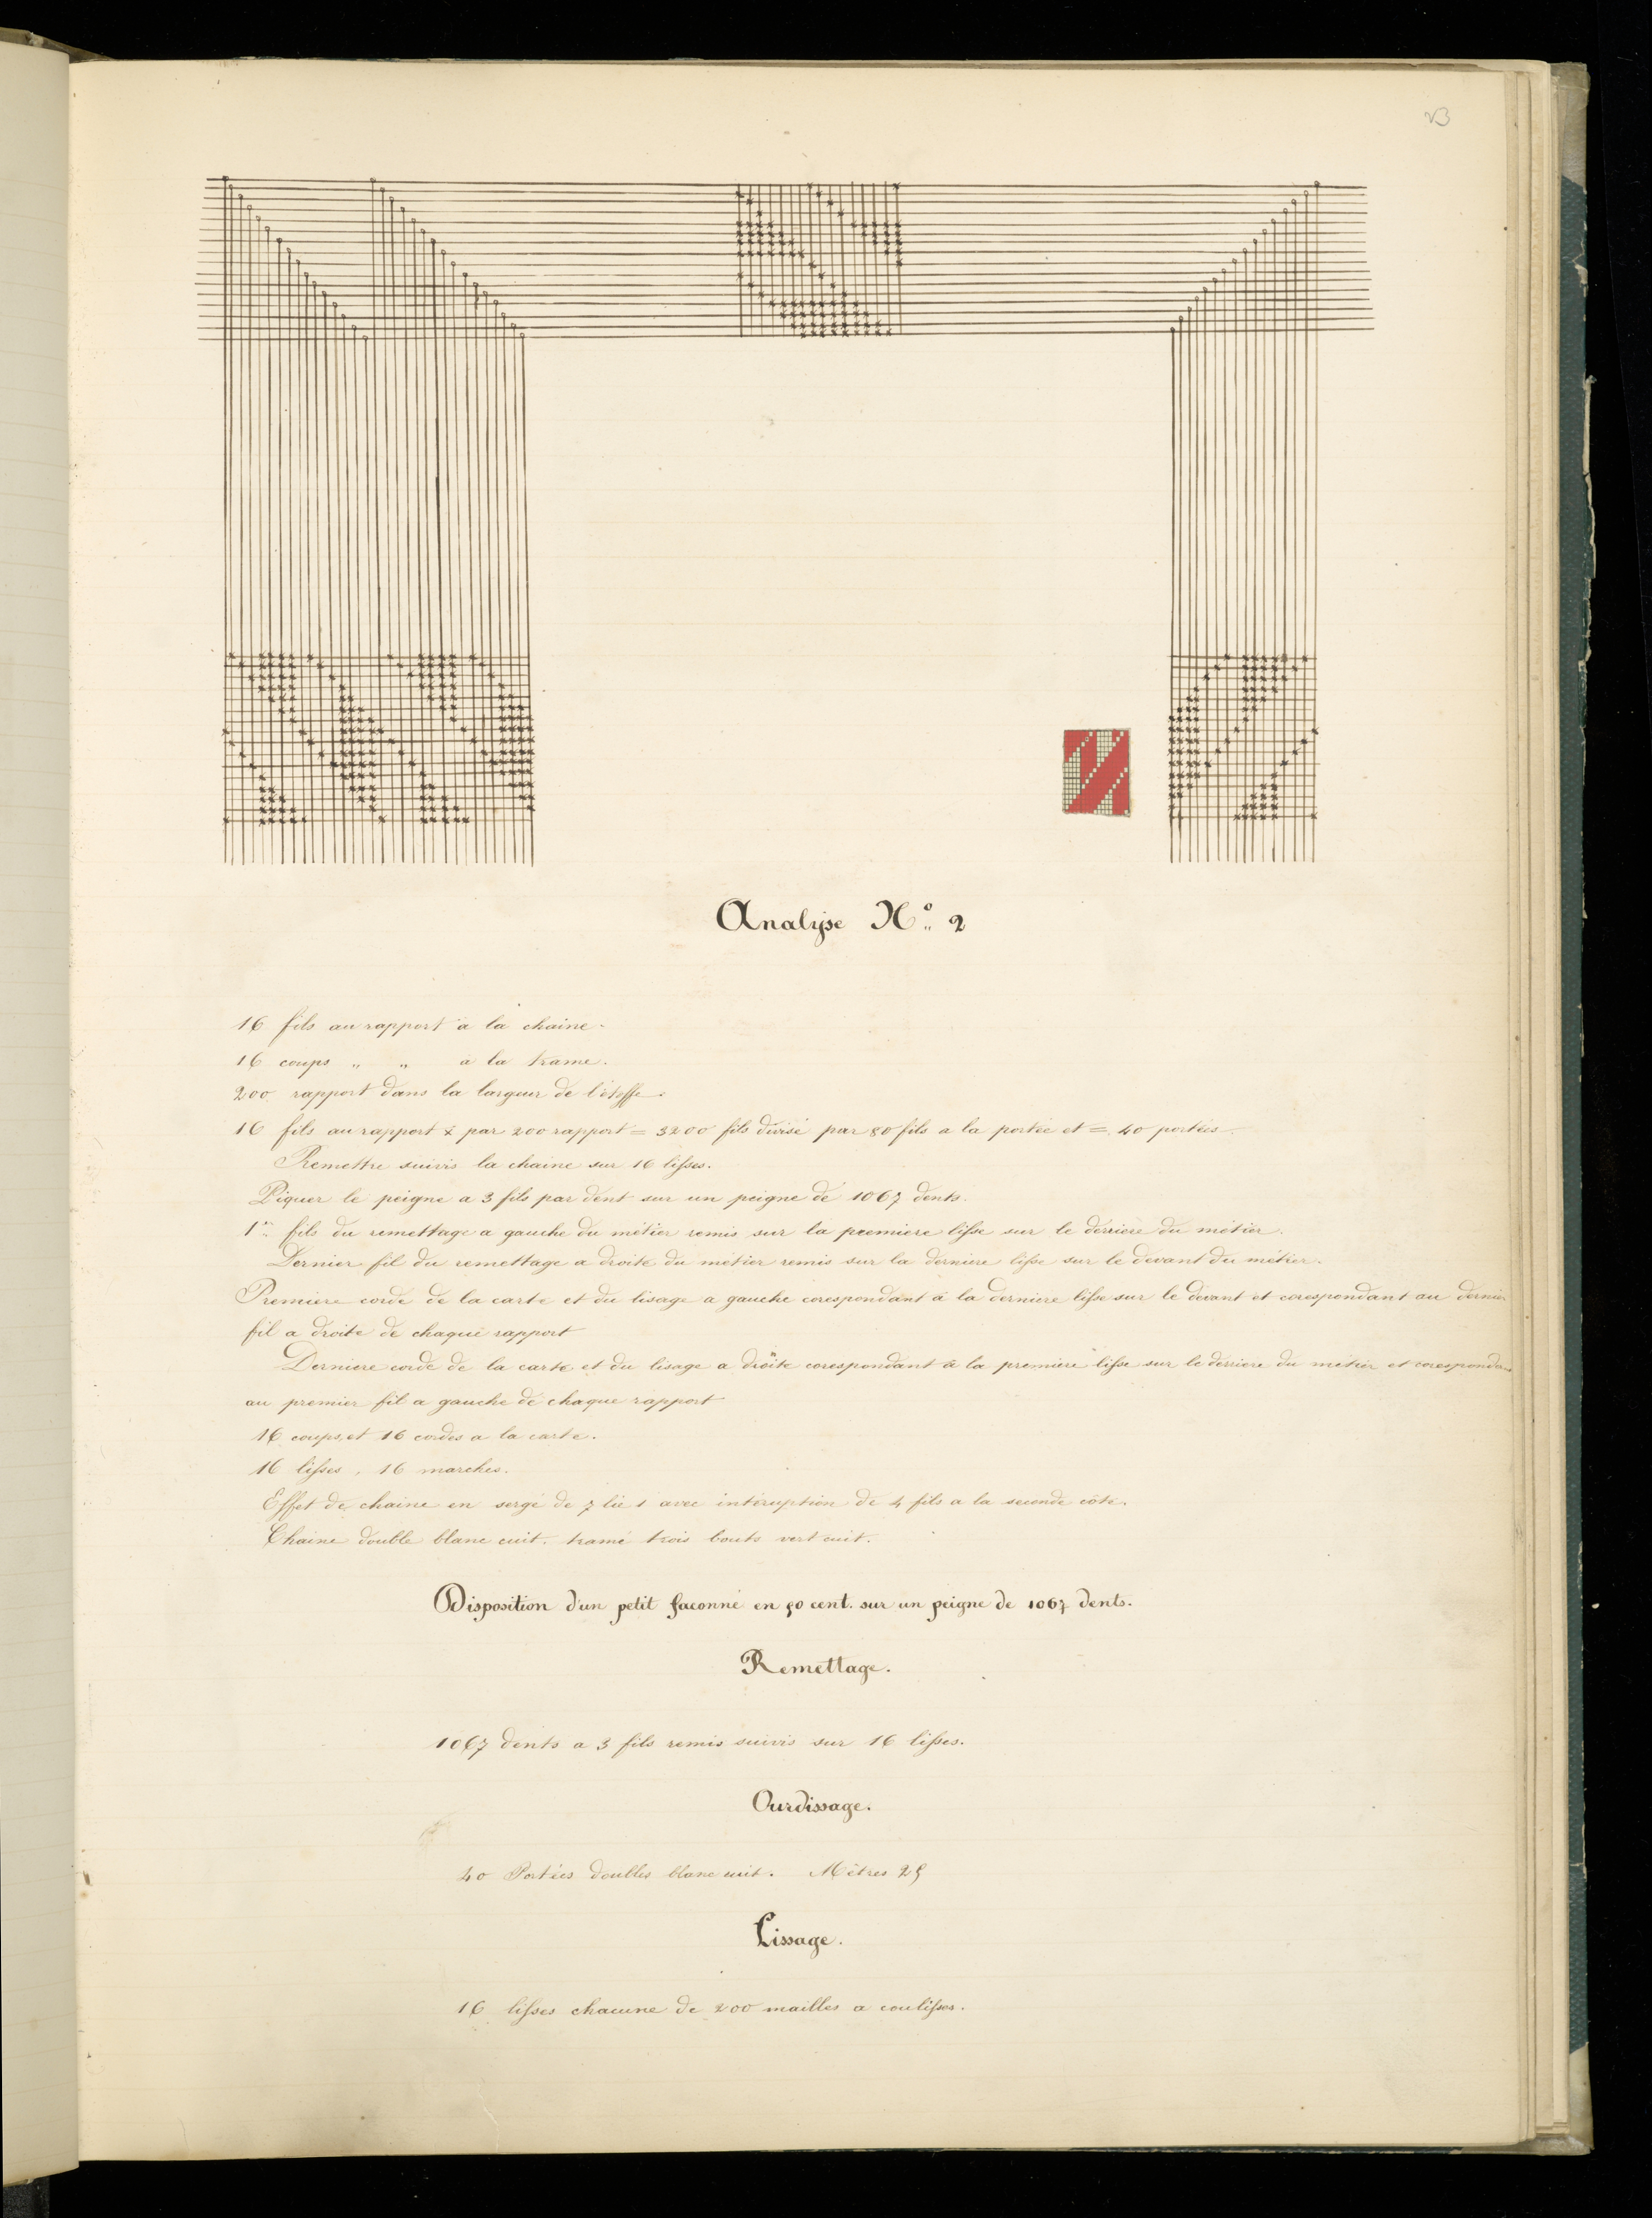 23
Analyse N° 2
16 fils au rapport a la chaine.
16 coups " " a la trame.
200 rapport dans la largeur de l'étoffe.
16 fils au rapport x par 200 rapport = 3200 fils divisé par 80 fils a la portée et = 40 portées.
Remettre suivis la chaine sur 16 lisses.
Piquer le peigne a 3 fils par dent sur un peigne de 1067 dents.
1er fils du remettage a gauche du métier remis sur la premiere lisse sur le derriere du métier.
Dernier fil du remettage a droite du métier remis sur la derniere lisse sur le devant du métier.
Premiere corde de la carte et du lisage a gauche corespondant à la derniere lisse sur le devant et corespondant au dernier
fil a droite de chaque rapport
Derniere corde de la carte et du lisage a droite corespondant à la premiere lisse sur le derriere du métier et corespondant
au premier fil a gauche de chaque rapport
16 coups, et 16 cordes a la carte.
16 lisses, 16 marches.
Effet de chaine en sergé de 7 lie 1 avec intéruption de 4 fils a la seconde côte.
Chaine double blanc cuit. tramé trois bouts vert cuit.
Disposition d'un petit façonné en 50 cent. sur un peigne de 1067 dents.
Remettage.
1067 dents a 3 fils remis suivis sur 16 lisses.
Ourdissage.
40 Portées doubles blanc cuit. Mètres 25
Lissage.
16 lisses chacune de 200 mailles a coulisses.